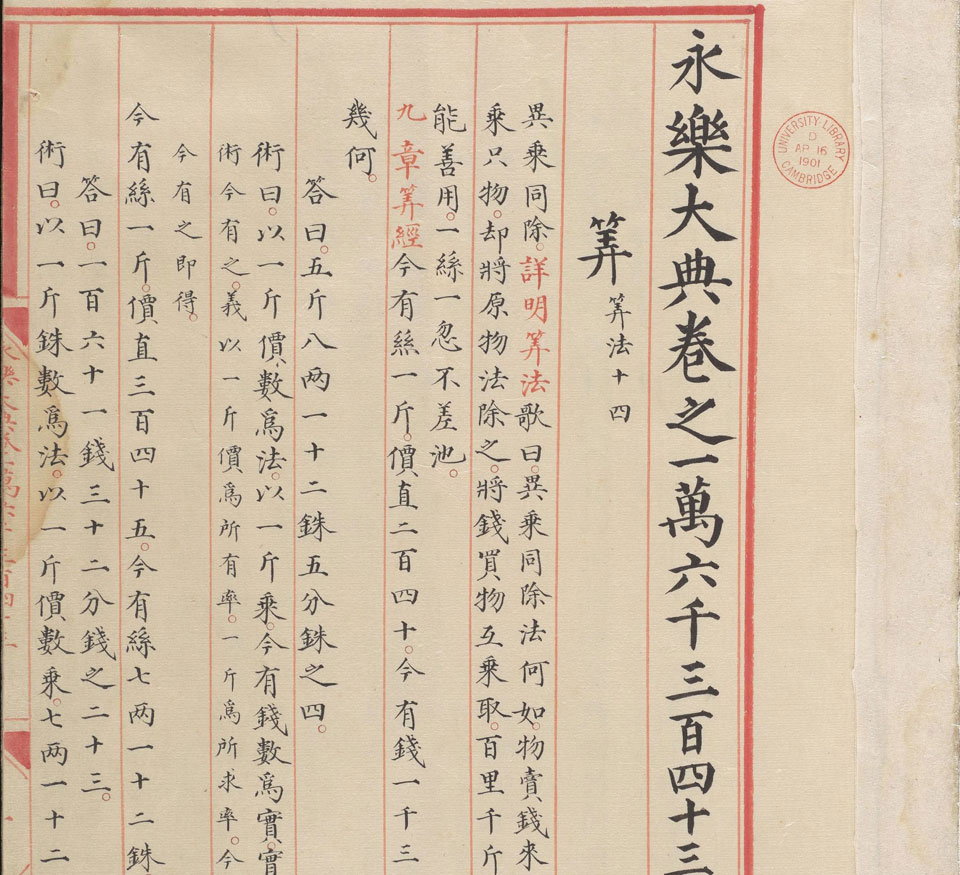 永樂大典卷之一萬六千三百四十三
筭 筭法十四
異乘同除。詳明筭法歌曰。異乘同除法何如。物賣錢來
乘只物。却將原物法除之。將錢買物互乘取。百里千斤
能善用。一絲一忽不差池。
九章筭經今有絲一斤。價直二百四十。今有錢一千三
幾何。
答曰。五斤八两一十二銖五分銖之四。
術曰。以一斤價數爲法。以一斤乘。今有錢數爲實。實
術今有之。義以一斤價爲所有率。一斤爲所求率。今
今有之即得。
今有絲一斤。價直三百四十五。今有絲七两一十二銖
答曰。一百六十一錢三十二分錢之二十三。
術曰。以一斤銖數爲法。以一斤價數乘。七两一十二
UNIVERSITY LIBRARY
D
AP 16
1901
CAMBRIDGE